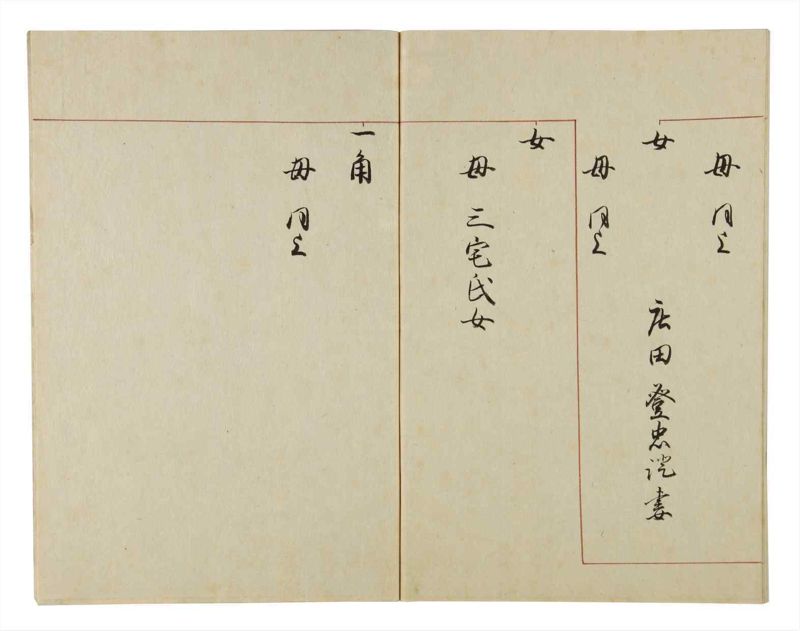 母 同上
女
庄田登忠證妻
母 同上
女
母 三宅氏女
一角
母 同上